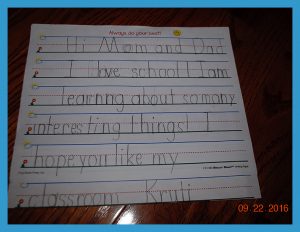 Always do your best!
Hi Mom and Dad
I love school! I am
learning about so many
interesting things! I
hope you like my
classroom. Kruti
09.22.2016